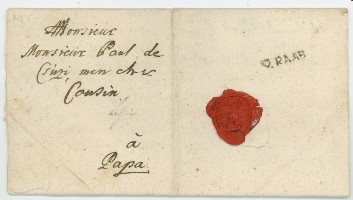 Monsieur
Monsieur Paul de
mon cher
Cousin
à
Papa
V. RAAB